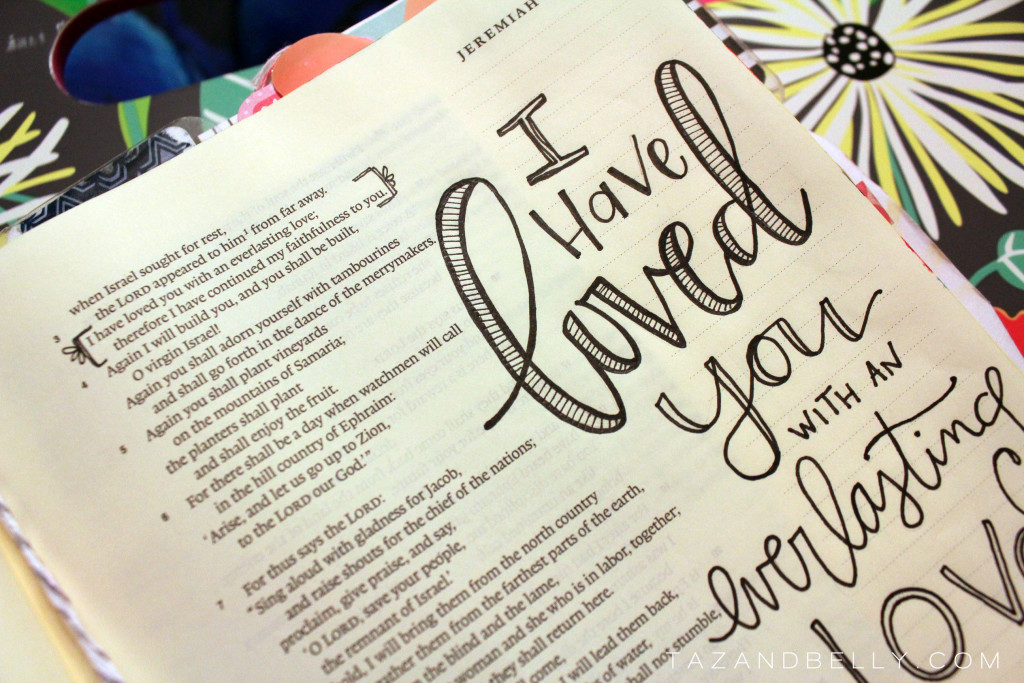 JEREMIAH
when Israel sought for rest,
3 the LORD appeared to him¹ from far away.
I have loved you with an everlasting love;
therefore I have continued my faithfulness to you.
4 Again I will build you, and you shall be built,
O virgin Israel!
Again you shall adorn yourself with tambourines
and shall go forth in the dance of the merrymakers.
5 Again you shall plant vineyards
on the mountains of Samaria;
the planters shall plant
and shall enjoy the fruit.
6 For there shall be a day when watchmen will call
in the hill country of Ephraim:
‘Arise, and let us go up to Zion,
to the LORD our God.’”
7 For thus says the LORD:
“Sing aloud with gladness for Jacob,
and raise shouts for the chief of the nations;
proclaim, give praise, and say,
‘O LORD, save your people,
the remnant of Israel.’
I will bring them from the north country
them from the farthest parts of the earth,
the blind and the lame,
woman and she who is in labor, together;
they shall return here.
come,
I will lead them back,
of water,
stumble,
I
Have
loved
you
WITH AN
everlasting
LOVE
TAZANDBELLY.COM